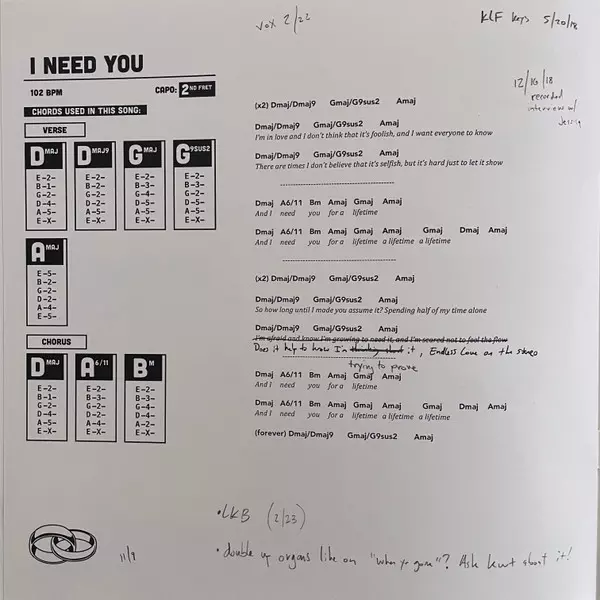 vox 2/22
KLF keys 5/20/18
I NEED YOU
102 BPM
CAPO: 2ND FRET
12/16/18
recorded
interview w/
CHORDS USED IN THIS SONG:
VERSE
DMAJ DMAJ9 GMAJ G9SUS2
E-2- E-2- E-2- E-2-
B-1- B-2- B-3- B-3-
G-2- G-2- G-2- G-2-
D-4- D-2- D-5- D-5-
A-5- A-5- A-5- A-5-
E-X- E-X- E-X- E-X-
AMAJ
E-5-
B-2-
G-2-
D-2-
A-4-
E-5-
CHORUS
DMAJ A6/11 BM
E-2- E-2- E-2-
B-1- B-3- B-3-
G-2- G-2- G-4-
D-4- D-2- D-4-
A-5- A-X- A-2-
E-X- E-X- E-X-
(x2) Dmaj/Dmaj9 Gmaj/G9sus2 Amaj
Dmaj/Dmaj9 Gmaj/G9sus2 Amaj
I'm in love and I don't think that it's foolish, and I want everyone to know
Dmaj/Dmaj9 Gmaj/G9sus2 Amaj
There are times I don't believe that it's selfish, but it's hard just to let it show
Dmaj A6/11 Bm Amaj Gmaj Amaj
And I need you for a lifetime
Dmaj A6/11 Bm Amaj Gmaj Amaj Gmaj Dmaj Amaj
And I need you for a lifetime a lifetime a lifetime
(x2) Dmaj/Dmaj9 Gmaj/G9sus2 Amaj
Dmaj/Dmaj9 Gmaj/G9sus2 Amaj
So how long until I made you assume it? Spending half of my time alone
Dmaj/Dmaj9 Gmaj/G9sus2 Amaj
I'm afraid and know I'm growing to need it, and I'm scared not to feel the flow
Does it help to know I'm thinking about it, Endless Love on the stereo
trying to prove
Dmaj A6/11 Bm Amaj Gmaj Amaj
And I need you for a lifetime
Dmaj A6/11 Bm Amaj Gmaj Amaj Gmaj Dmaj Amaj
And I need you for a lifetime a lifetime a lifetime
(forever) Dmaj/Dmaj9 Gmaj/G9sus2 Amaj
• LKB (2/23)
11/9
• double up organs like on "when yr gone"? Ask kurt about it!